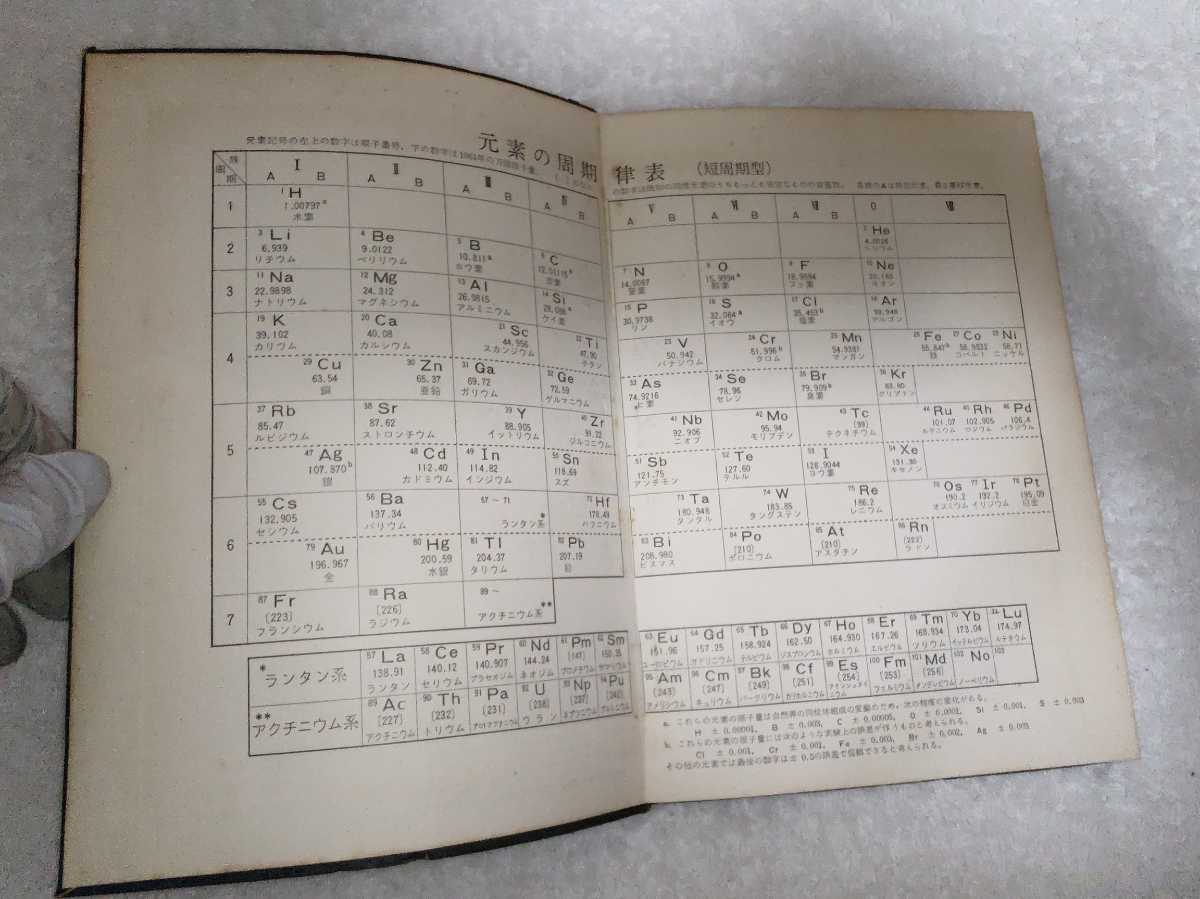 元素の周期律表 (短周期型)
元素記号の左上の数字は原子番号,下の数字は1961年の万国原子量.
族
周期
I II III IV V VI VII 0 VIII
A B A B A B A B A B A B A B
1
1 H
1.00797a
水素
2 He
4.0026
ヘリウム
2
3 Li 4 Be 5 B 6 C 7 N 8 O 9 F 10 Ne
6.939 9.0122 10.811a 12.01115a 14.0067 15.9994a 18.9984 20.183
リチウム ベリリウム ホウ素 炭素 窒素 酸素 フッ素 ネオン
3
11 Na 12 Mg 13 Al 14 Si 15 P 16 S 17 Cl 18 Ar
22.9898 24.312 26.9815 28.086a 30.9738 32.064a 35.453b 39.948
ナトリウム マグネシウム アルミニウム ケイ素 リン イオウ 塩素 アルゴン
4
19 K 20 Ca 21 Sc 22 Ti 23 V 24 Cr 25 Mn 26 Fe 27 Co 28 Ni
39.102 40.08 44.956 47.90 50.942 51.996b 54.9381 55.847b 58.9332 58.71
カリウム カルシウム スカンジウム チタン バナジウム クロム マンガン 鉄 コバルト ニッケル
29 Cu 30 Zn 31 Ga 32 Ge 33 As 34 Se 35 Br 36 Kr
63.54 65.37 69.72 72.59 74.9216 78.96 79.909b 83.80
銅 亜鉛 ガリウム ゲルマニウム ヒ素 セレン 臭素 クリプトン
5
37 Rb 38 Sr 39 Y 40 Zr 41 Nb 42 Mo 43 Tc 44 Ru 45 Rh 46 Pd
85.47 87.62 88.905 91.22 92.906 95.94 [99] 101.07 102.905 106.4
ルビジウム ストロンチウム イットリウム ジルコニウム ニオブ モリブデン テクネチウム ルテニウム ロジウム パラジウム
47 Ag 48 Cd 49 In 50 Sn 51 Sb 52 Te 53 I 54 Xe
107.870b 112.40 114.82 118.69 121.75 127.60 126.9044 131.30
銀 カドミウム インジウム スズ アンチモン テルル ヨウ素 キセノン
6
55 Cs 56 Ba 57~71 72 Hf 73 Ta 74 W 75 Re 76 Os 77 Ir 78 Pt
132.905 137.34 * 178.49 180.948 183.85 186.2 190.2 192.2 195.09
セシウム バリウム ランタン系 ハフニウム タンタル タングステン レニウム オスミウム イリジウム 白金
79 Au 80 Hg 81 Tl 82 Pb 83 Bi 84 Po 85 At 86 Rn
196.967 200.59 204.37 207.19 208.980 [210] [210] [222]
金 水銀 タリウム 鉛 ビスマス ポロニウム アスタチン ラドン
7
87 Fr 88 Ra 89~
[223] [226] **
フランシウム ラジウム アクチニウム系
* ランタン系
57 La 58 Ce 59 Pr 60 Nd 61 Pm 62 Sm 63 Eu 64 Gd 65 Tb 66 Dy 67 Ho 68 Er 69 Tm 70 Yb 71 Lu
138.91 140.12 140.907 144.24 [147] 150.35 151.96 157.25 158.924 162.50 164.930 167.26 168.934 173.04 174.97
ランタン セリウム プラセオジム ネオジム プロメチウム サマリウム ユーロピウム ガドリニウム テルビウム ジスプロシウム ホルミウム エルビウム ツリウム イッテルビウム ルテチウム
** アクチニウム系
89 Ac 90 Th 91 Pa 92 U 93 Np 94 Pu 95 Am 96 Cm 97 Bk 98 Cf 99 Es 100 Fm 101 Md 102 No 103
[227] [232] [231] [238] [237] [242] [243] [247] [249] [251] [254] [253] [256]
アクチニウム トリウム プロトアクチニウム ウラン ネプツニウム プルトニウム アメリシウム キュリウム バークリウム カリホルニウム アインシュタイニウム フェルミウム メンデレビウム ノーベリウム
a. これらの元素の原子量は自然界の同位体組成の変動のため,次の程度の変化がある.
H ± 0.00001, B ± 0.003, C ± 0.00005, O ± 0.0001, Si ± 0.001, S ± 0.003
b. これらの元素の原子量には次のような実験上の誤差が伴うものと考えられる.
Cl ± 0.001, Cr ± 0.001, Fe ± 0.003, Br ± 0.002, Ag ± 0.003
その他の元素では最後の数字は± 0.5の誤差で信頼できると考えられる.